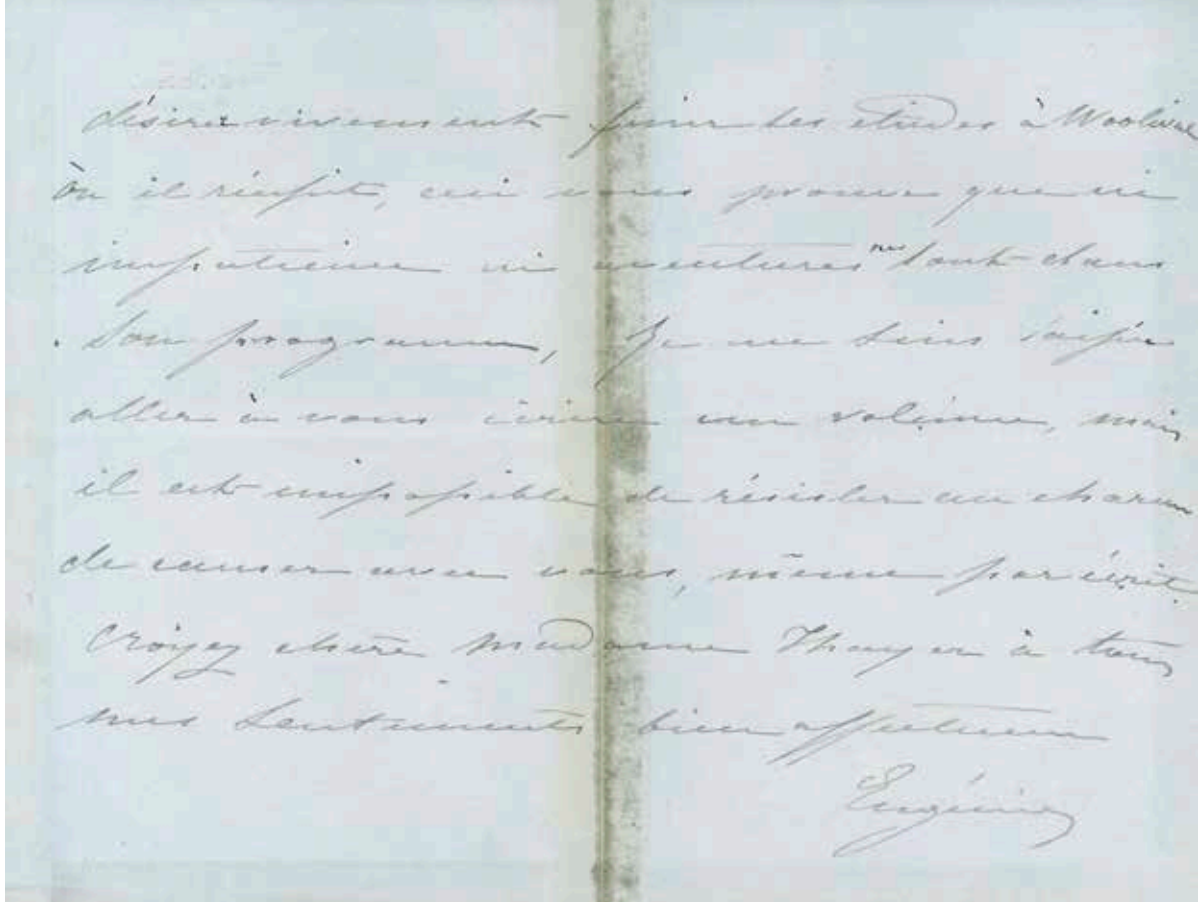 désire vivement finir ses études à Woolwich
où il réussit, ceci vous prouve que ni
impatience ni aventures ne sont dans
son programme, Je me suis laissée
aller à vous écrire un volume, mais
il est impossible de résister au charme
de causer avec vous, même par écrit.
Croyez chère Madame Thayer à tous
mes sentiments bien affectueux
Eugénie